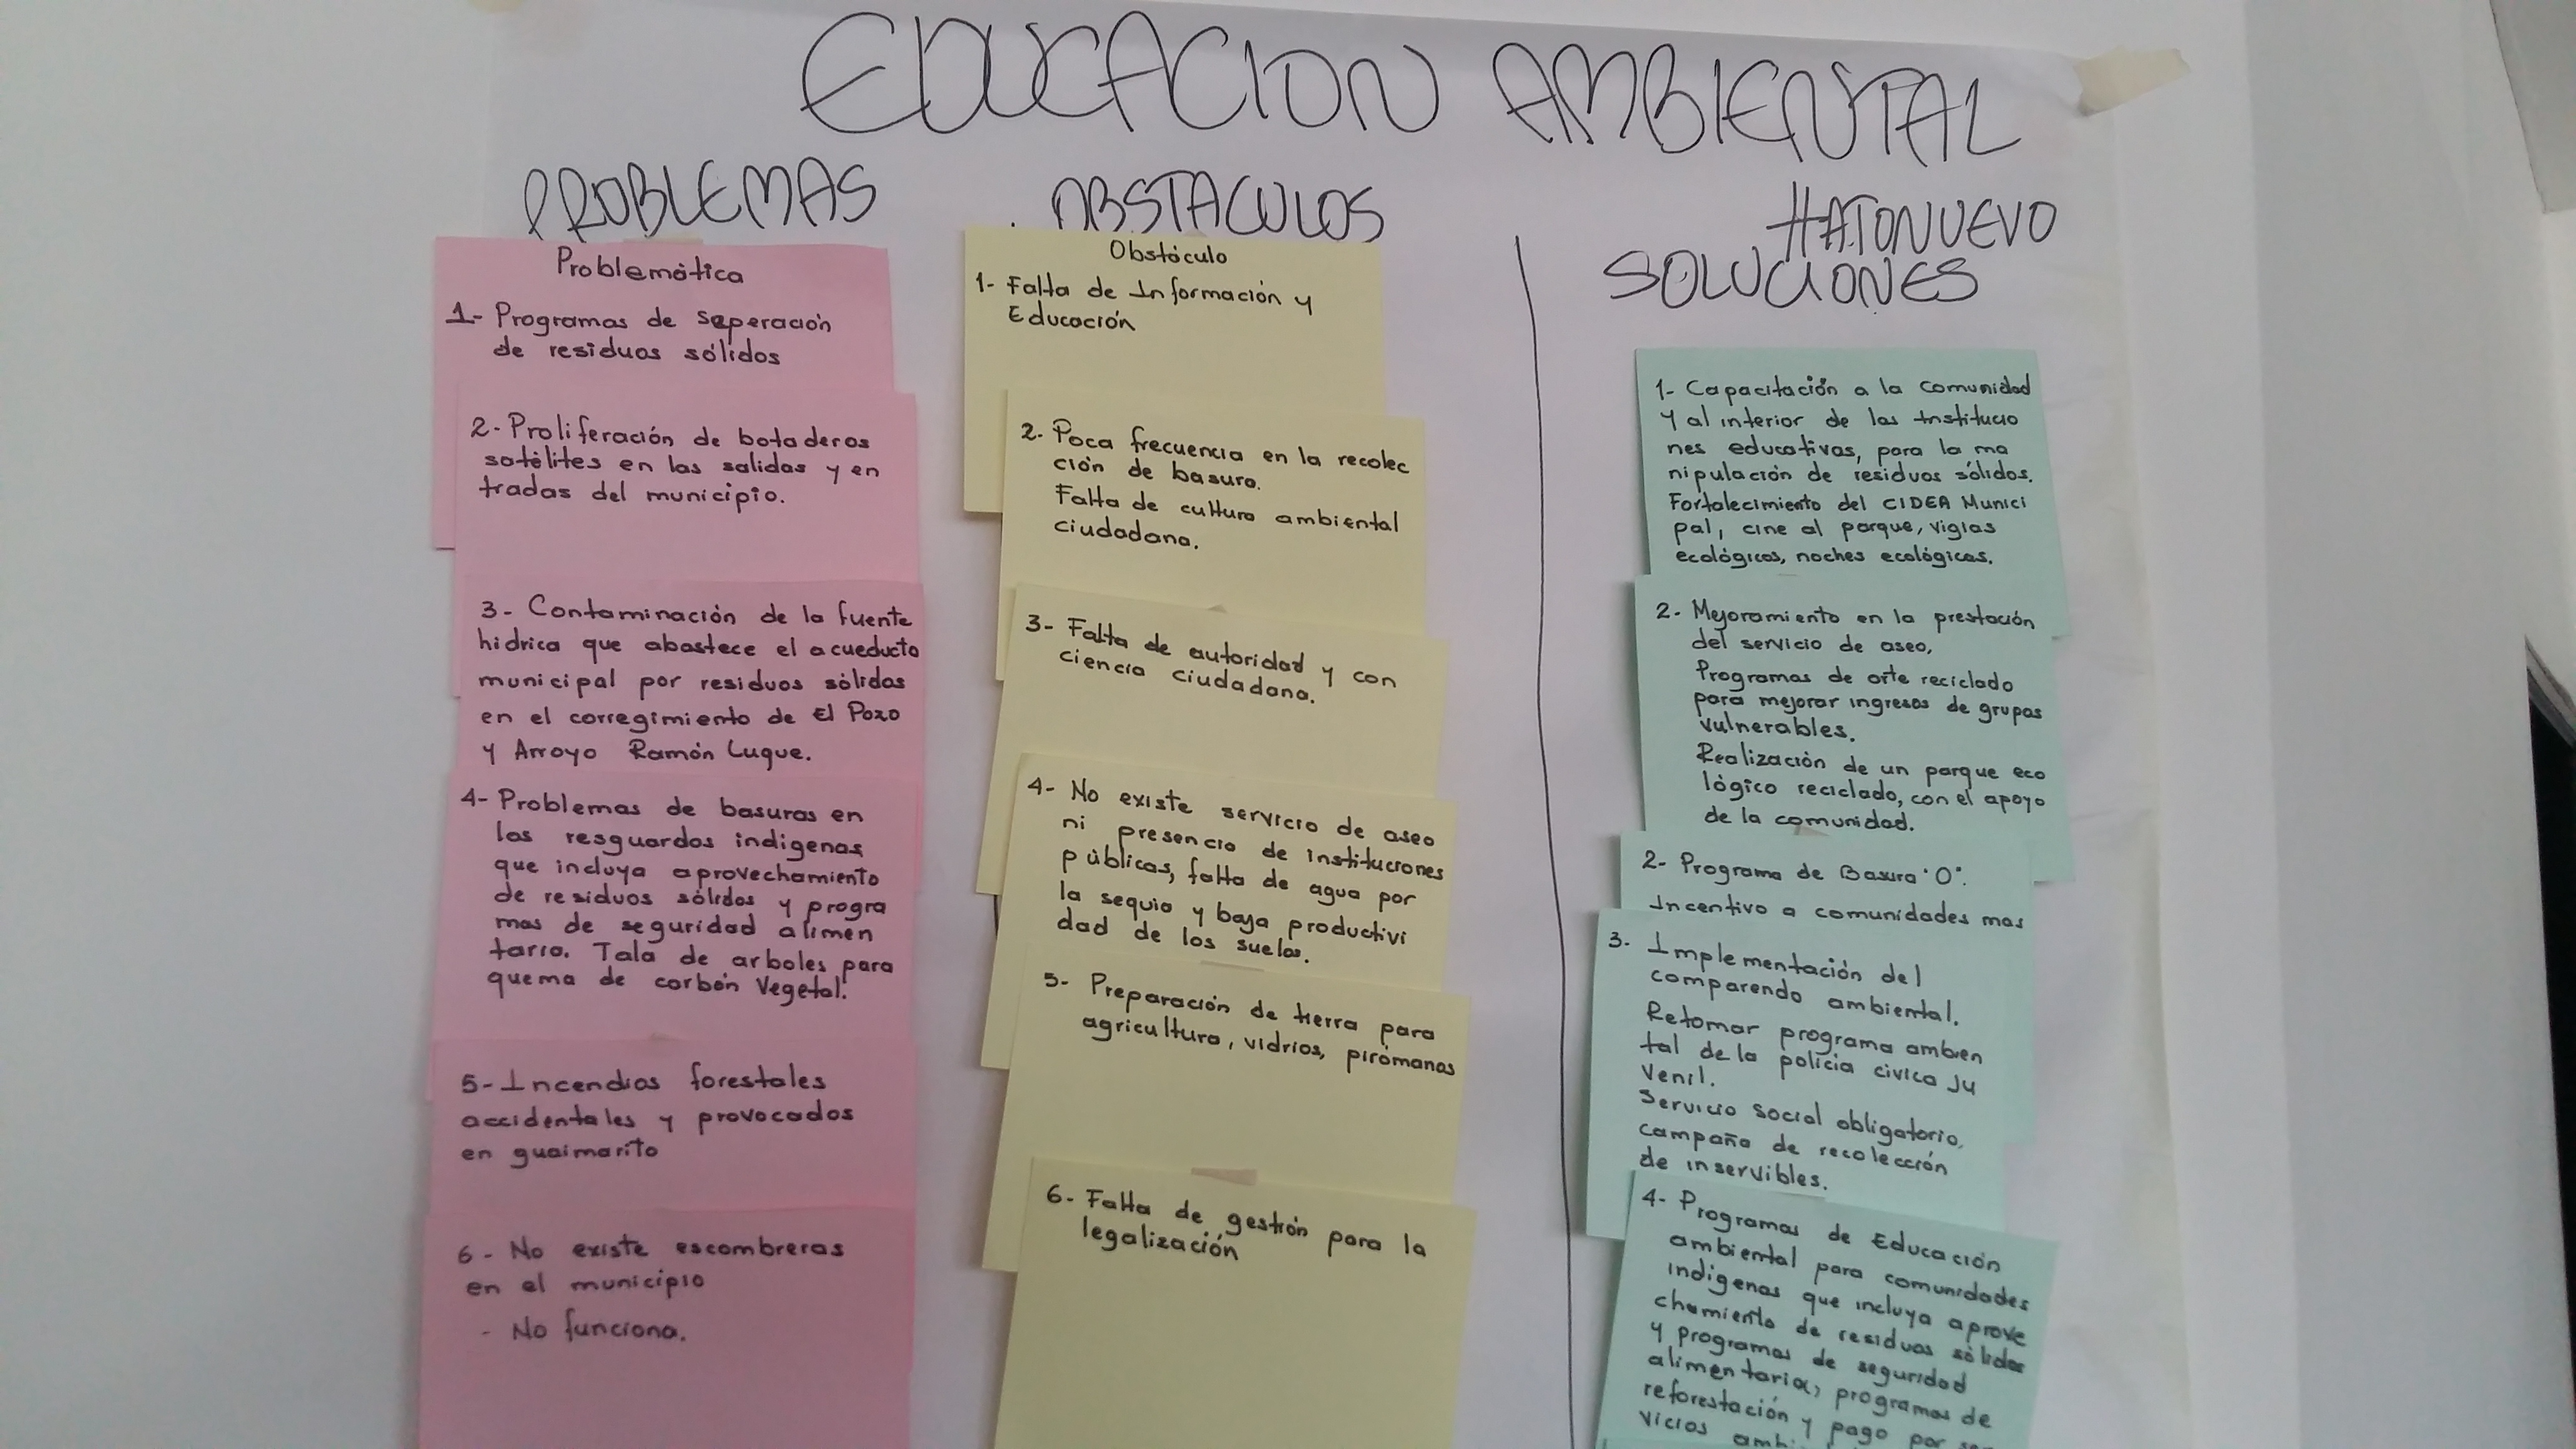 EDUCACION AMBIENTAL
PROBLEMAS
Problemática
1- Programas de seperación
de residuos sólidos
2- Proliferación de botaderos
satélites en las salidas y en
tradas del municipio.
3- Contaminación de la fuente
hidrica que abastece el acueducto
municipal por residuos sólidos
en el corregimiento de El Pozo
y Arroyo Ramón Luque.
4- Problemas de basuras en
los resguardos indigenas
que incluya aprovechamiento
de residuos sólidos y progra
mas de seguridad alimen
taria. Tala de arboles para
quema de carbón Vegetal.
5- Incendios forestales
accidentales y provocados
en guaimarito
6- No existe escombreras
en el municipio
- No funciona.
OBSTACULOS
Obstáculo
1- Falta de Información y
Educación
2. Poca frecuencia en la recolec
ción de basura.
Falta de cultura ambiental
ciudadana.
3- Falta de autoridad y con
ciencia ciudadana.
4- No existe servicio de aseo
ni presencia de instituciones
públicas, falta de agua por
la sequia y baja productivi
dad de los suelos.
5- Preparación de tierra para
agricultura, vidrios, pirómanos
6- Falta de gestión para la
legalización
HATONUEVO
SOLUCIONES
1- Capacitación a la comunidad
y al interior de las Institucio
nes educativas, para la ma
nipulación de residuos sólidos.
Fortalecimiento del CIDEA Munici
pal, cine al parque, vigias
ecológicos, noches ecológicas.
2- Mejoramiento en la prestación
del servicio de aseo,
Programas de arte reciclado
para mejorar ingresos de grupos
vulnerables.
Realización de un parque eco
lógico reciclado, con el apoyo
de la comunidad.
2- Programa de Basura "0".
Incentivo a comunidades mas
3. Implementación del
comparendo ambiental.
Retomar programa ambien
tal de la policia civica Ju
venil.
Servicio social obligatorio,
campaña de recolección
de inservibles.
4- Programas de Educación
ambiental para comunidades
indigenas que incluya aprove
chamiento de residuos sólidos
y programas de seguridad
alimentaria, programas de
reforestación y pago por
vicios